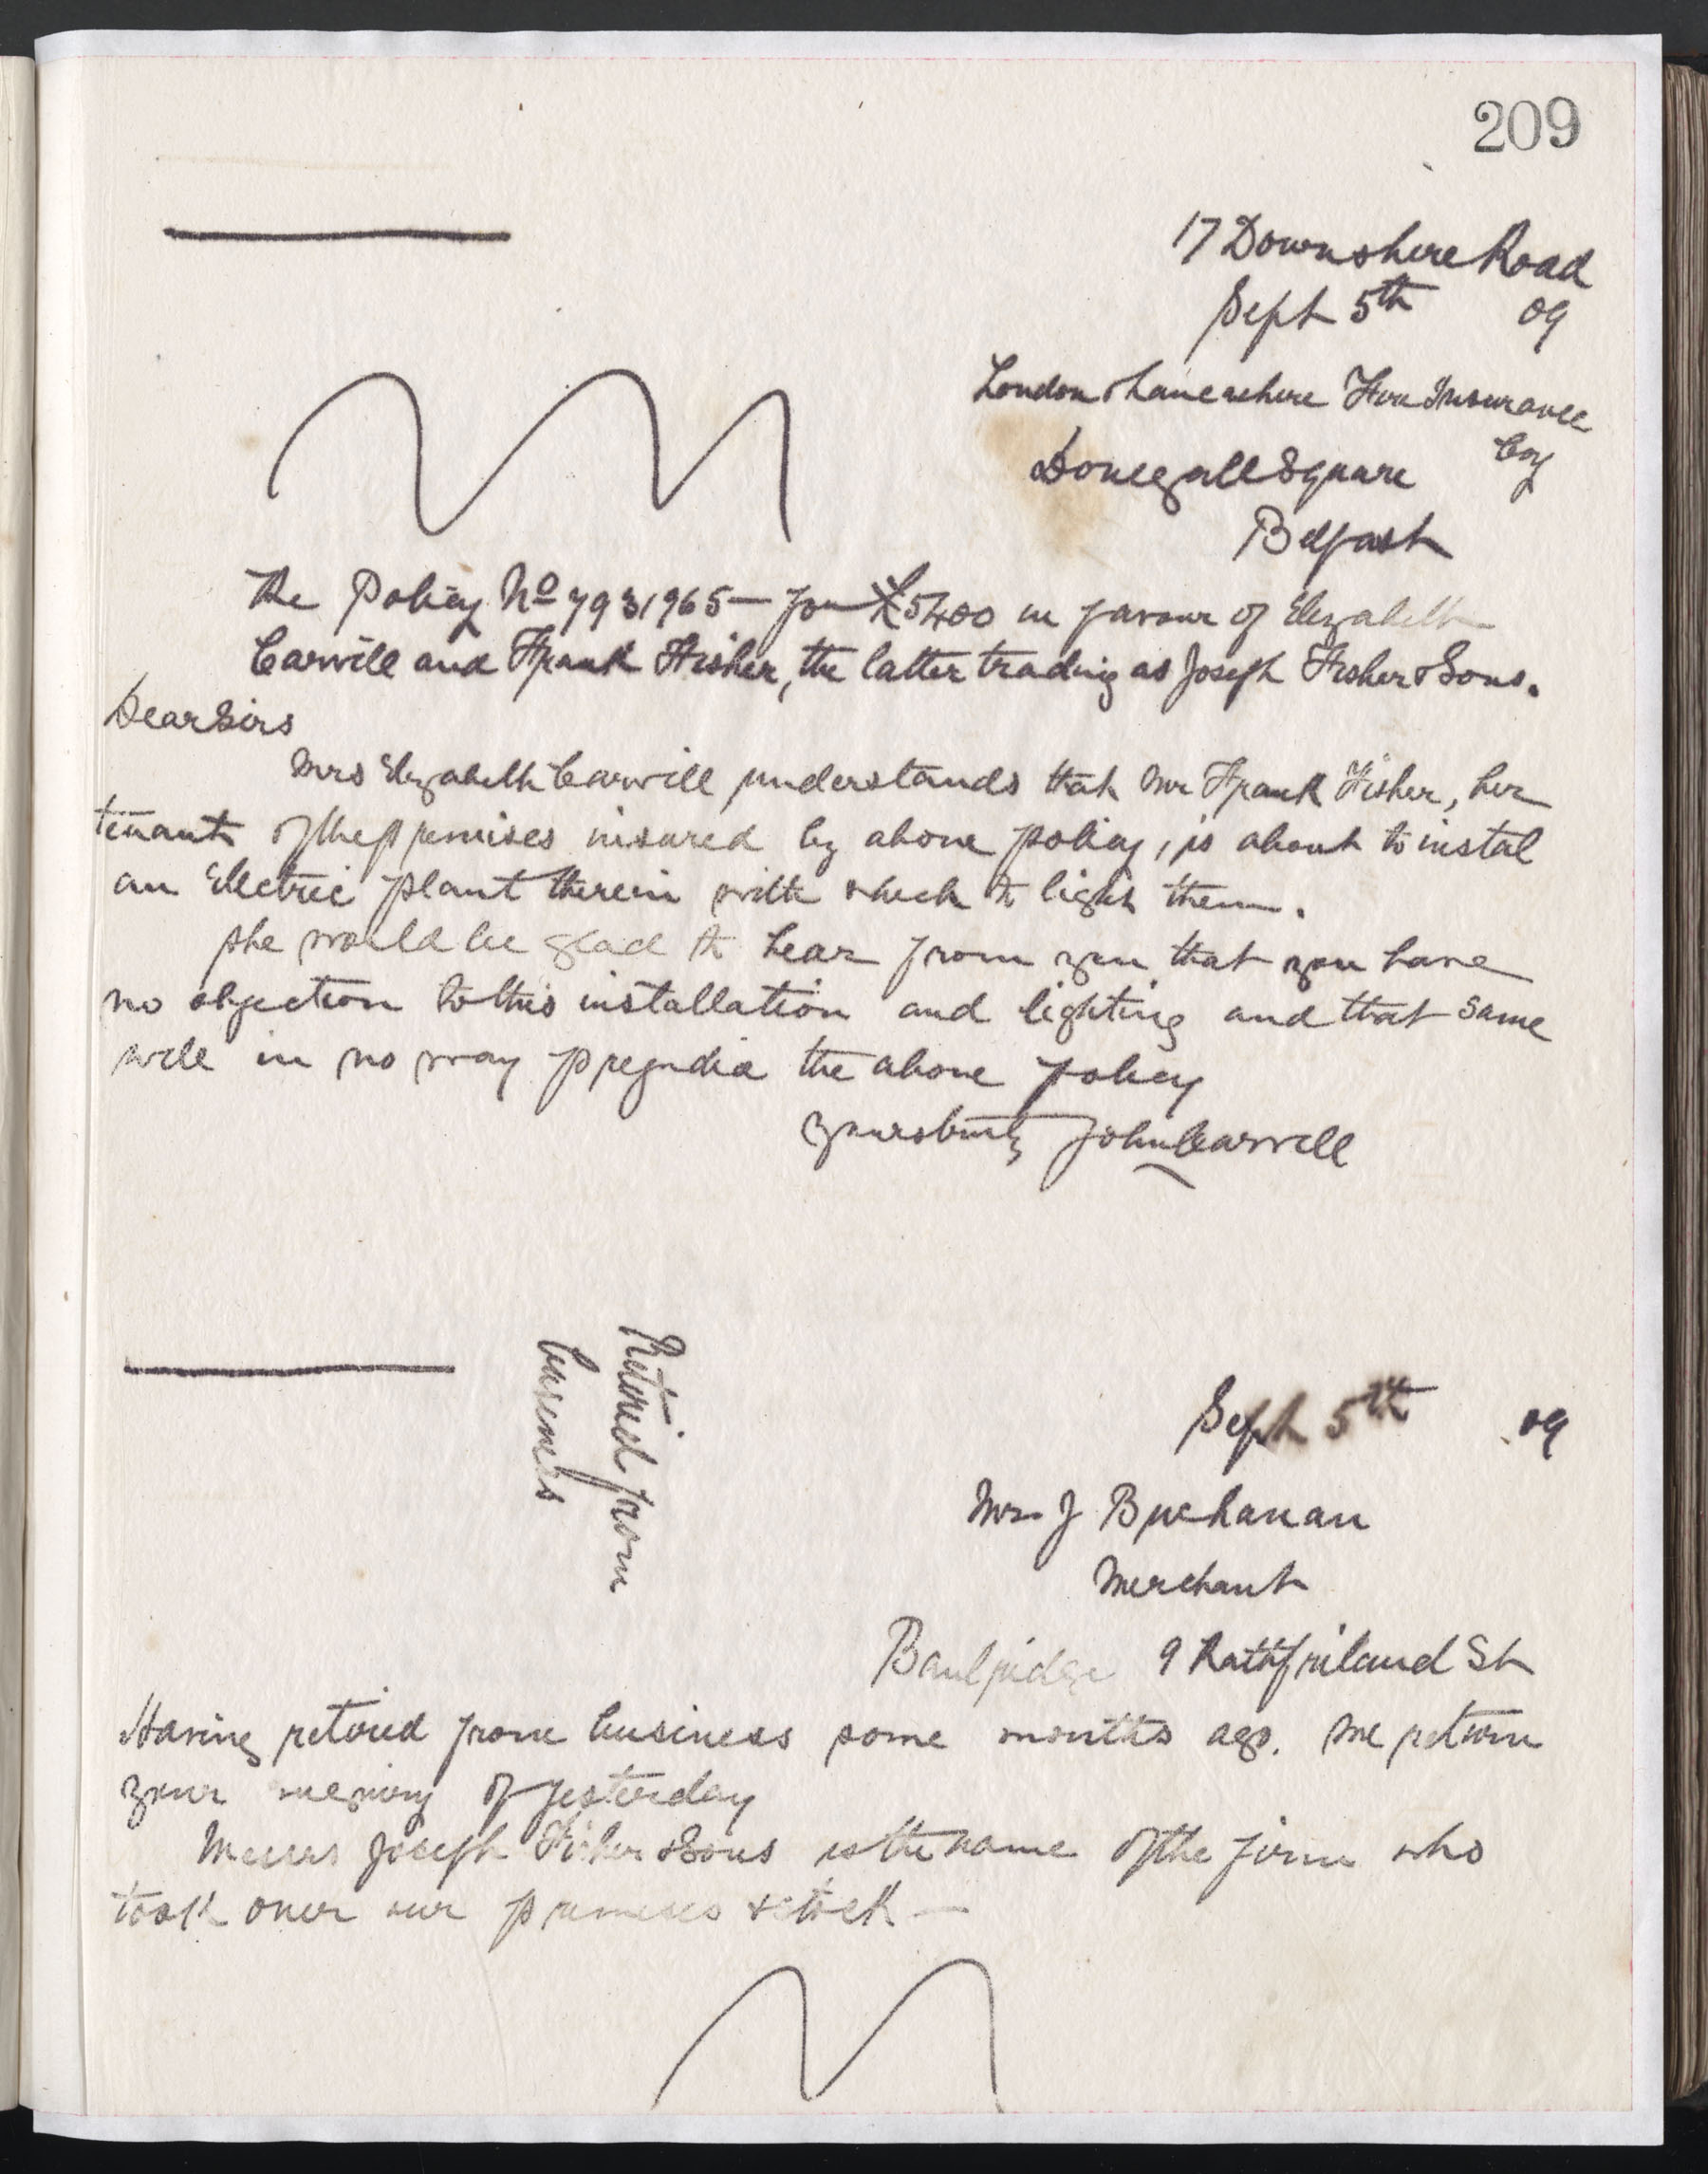 209
17 Downshire Road
Sept 5th 09
London & Lancashire Fire Insurance
Coy
Donegall Square
Belfast
The Policy No 7931965 — for £5400 in favour of Elizabeth
Carvill and Frank Fisher, the latter trading as Joseph Fisher & Sons.
Dear Sirs
Mrs Elizabeth Carvill understands that Mr Frank Fisher, her
tenant of the premises insured by above policy, is about to instal
an Electric plant therein with which to light them.
She would be glad to hear from you that you have
no objection to this installation and lighting and that same
will in no way prejudice the above policy
Yours truly John Carvill
Retired from
business
Sept 5th 09
Mr J Buchanan
Merchant
Banbridge 9 Rathfriland St
Having retired from business some months ago. We return
your of yesterday
Messrs Joseph Fisher & Sons is the name of the firm who
took over our premises & stock —